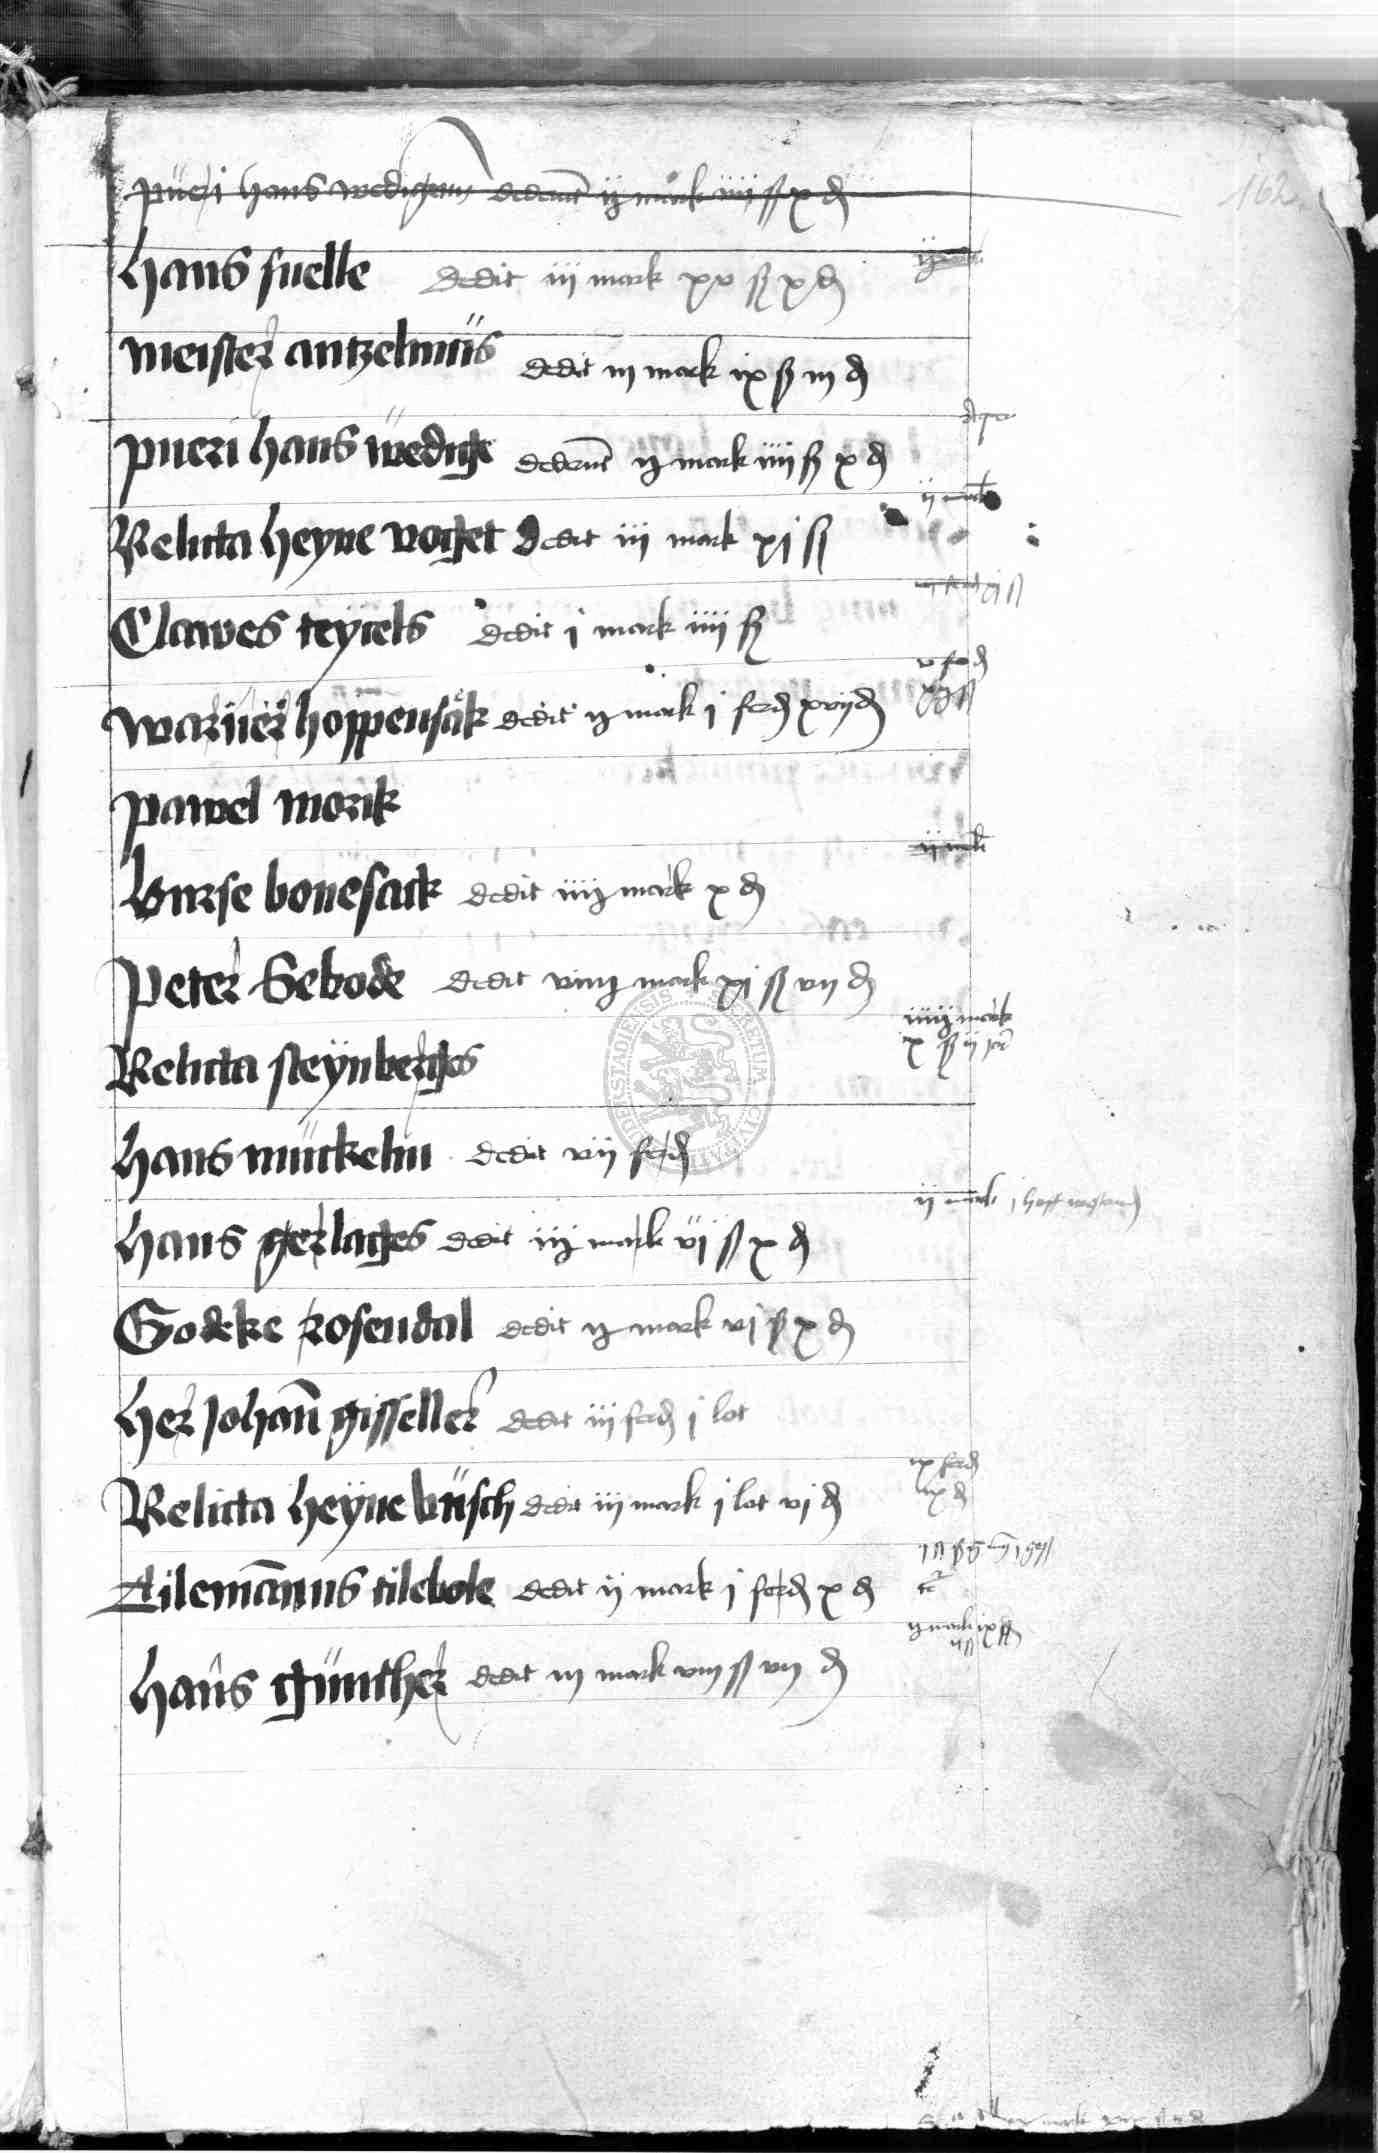 162
pueri hans wedigen dederunt ij mark iiij ß x ₰
hans snelle dedit iii mark xv ß x ₰
meister antzelmus dedit iij mark ix ß iij ₰
pueri hans wedige dederunt ij mark iiij ß x ₰
ij mark
Relicta heyne voget dedit iii mark xj ß
Clawes teyiels dedit j mark iiii ß
v ferd
warner hoppensak dedit ij mark j ferd xvij ₰
pawel morik
ij mark
Busse bonesack dedit iiij mark x ₰
Peter Sebode dedit viiij mark xj ß vij ₰
iiij mark
x ß ij
Relicta steynberges
hans munkelm dedit vii ferd
ij mark j
hans gerlages dedit iij mark vj ß x ₰
Godeke rosendal dedit ij mark vj ß x ₰
her Johan gisseller dedit iij ferd j lot
ix ferd
ix ₰
Relicta heyne busch dedit iij mark j lot vj ₰
Tilemannus tilebole dedit ij mark j ferd x ₰
ij mark ix ß
hans gunther dedit iij mark viij ß vij ₰